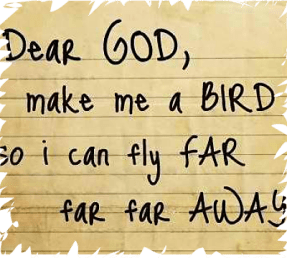 Dear GOD,
make me a BIRD
so i can fly FAR
far far AWAY